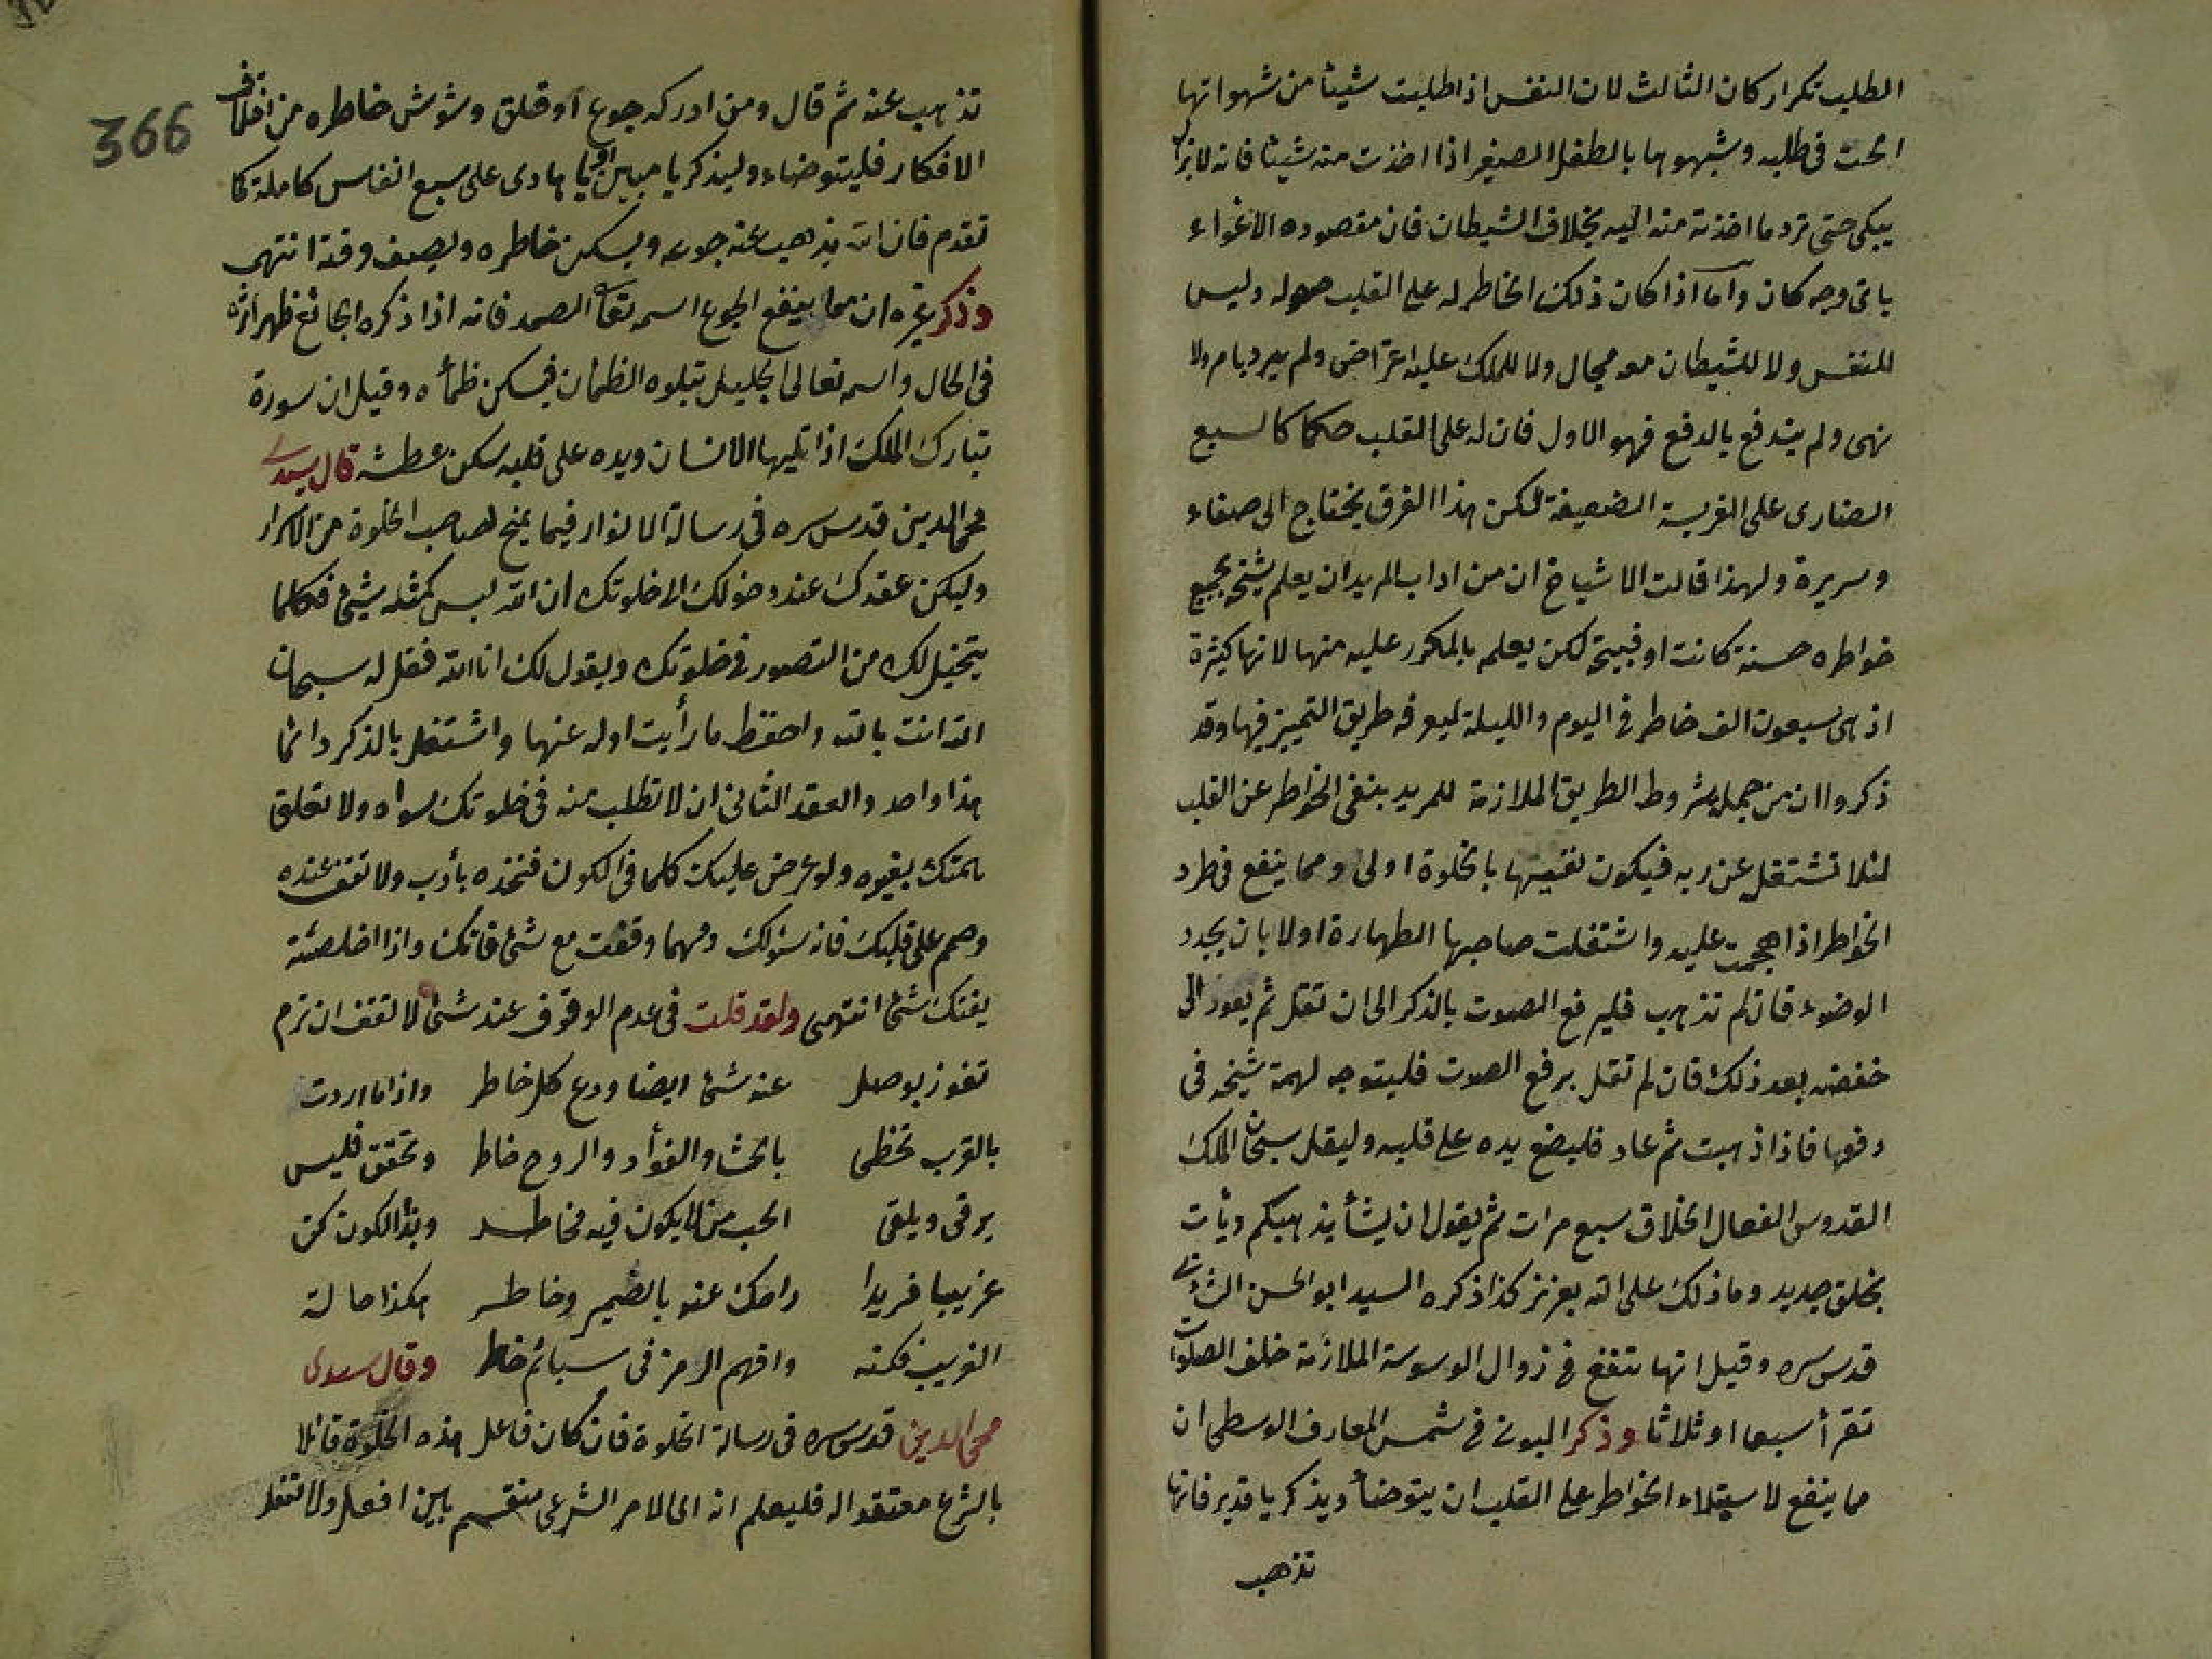 الطلب تكرار كان الثالث لان النفس اذا طلبت شيئا من شهواتها
الحت في طلبه وشبهوها بالطفل الصغير اذا اخذت منه شيئا فانه لا يزال
يبكي حتى ترد ما اخذته منه اليه بخلاف الشيطان فان مقصوده الاغواء
باى وجه كان واما اذا كان ذلك الخاطر له على القلب صوله وليس
للنفس ولا للشيطان معه مجال ولا للملك عليه اعتراض ولم يرد بامر ولا
نهى ولم يندفع بالدفع فهو الاول فان له على القلب حكما كالسبع
الضارى على الفريسة الضعيفة لكن هذا الفرق يحتاج الى صفاء
وسريرة ولهذا قالت الاشياخ ان من اداب المريد ان يعلم شيخه بجميع
خواطره حسنة كانت او قبيحة لكن يعلم بالمكرر عليه منها لانها كثيرة
اذ هى سبعون الف خاطر في اليوم والليلة ليعرفه طريق التمييز فيها وقد
ذكروا ان من جملة شروط الطريق الملازمة للمريد بنفى الخواطر عن القلب
لئلا تشتغل عن ربه فيكون نفيها بالخلوة اولى ومما ينفع في طرد
الخواطر اذا هجمت عليه واشتغلت صاحبها الطهارة اولا بان يجدد
الوضوء فان لم تذهب فليرفع الصوت بالذكر الى ان تقل ثم يعود الى
خفضه بعد ذلك فان لم تقل برفع الصوت فليتوجه لهمة شيخه في
دفعها فاذا ذهبت ثم عاد فليضع يده على قلبه وليقل سبحان الملك
القدوس الفعال الخلاق سبع مرات ثم يقول ان يشأ يذهبكم ويأت
بخلق جديد وما ذلك على الله بعزيز كذا ذكره السيد ابو الحسن الشاذلى
قدس سره وقيل انها تنفع في زوال الوسوسة الملازمة خلف الصلوات
تقرأ سبعا او ثلاثا وذكر البونى في شمس المعارف الوسطى ان
مما ينفع لاستيلاء الخواطر على القلب ان يتوضأ ويذكر يا قدير فانها
تذهب
366
تذهب عنه ثم قال ومن ادركه جوع او قلق وشوش خاطره من اختلاف
الافكار فليتوضاء وليذكر يا مبين او يا هادى على سبع انفاس كاملة كما
تقدم فان الله يذهب عنه جوعه ويسكن خاطره ويصف وقته انتهى
وذكر غيره ان مما ينفع الجوع اسمه تعالى الصمد فانه اذا ذكره الجائع ظهر اثره
في الحال واسمه تعالى الجليل يتلوه الظمأن فيسكن ظمأه وقيل ان سورة
تبارك الملك اذا تليها الانسان ويده على قلبه سكن عطشه قال سيدى
محى الدين قدس سره في رسالة الانوار فيما يمنح لصاحب الخلوة من الاسرار
وليكن عقدك عند دخولك الى خلوتك ان الله ليس كمثله شئ فكلما
يتخيل لك من التصور في خلوتك ويقول لك انا الله فقل له سبحان
الله انت بالله واحفظ ما رأيت اوله عنها واشتغل بالذكر دائما
هذا واحد والعقد الثانى ان لا تطلب منه في خلوتك سواه ولا تعلق
همتك بغيره ولو عرض عليك كلما في الكون فخذه بأدب ولا تقف عنده
وصمم على قلبك فانه سئولك ومهما وقفت مع شئ فاتك واذا اخلصته
يفتك شئ انتهى ولقد قلت في عدم الوقوف عند شئ لا تقف ان ترم
تفوز بوصل عنه شئ ايضا ودع كل خاطر واذا ما اردت
بالقرب تحظى بالحشا والفؤاد والروح خاطر وتحقق فليس
يرقى ويلقى الحب من لا يكون فيه مخاطر وبذا الكون كن
غريبا فريدا وامك عنه بالضمير وخاطر هكذا حالة
الغريب فكنه وافهم الرمز في نسائم خاطر وقال سيدى
محى الدين قدس سره في رسالة الخلوة فان كان فاعل هذه الخلوة قائلا
بالشرع معتقدا له فليعلم انه الى الامر الشرعى منقسم بين افعل ولا تفعل